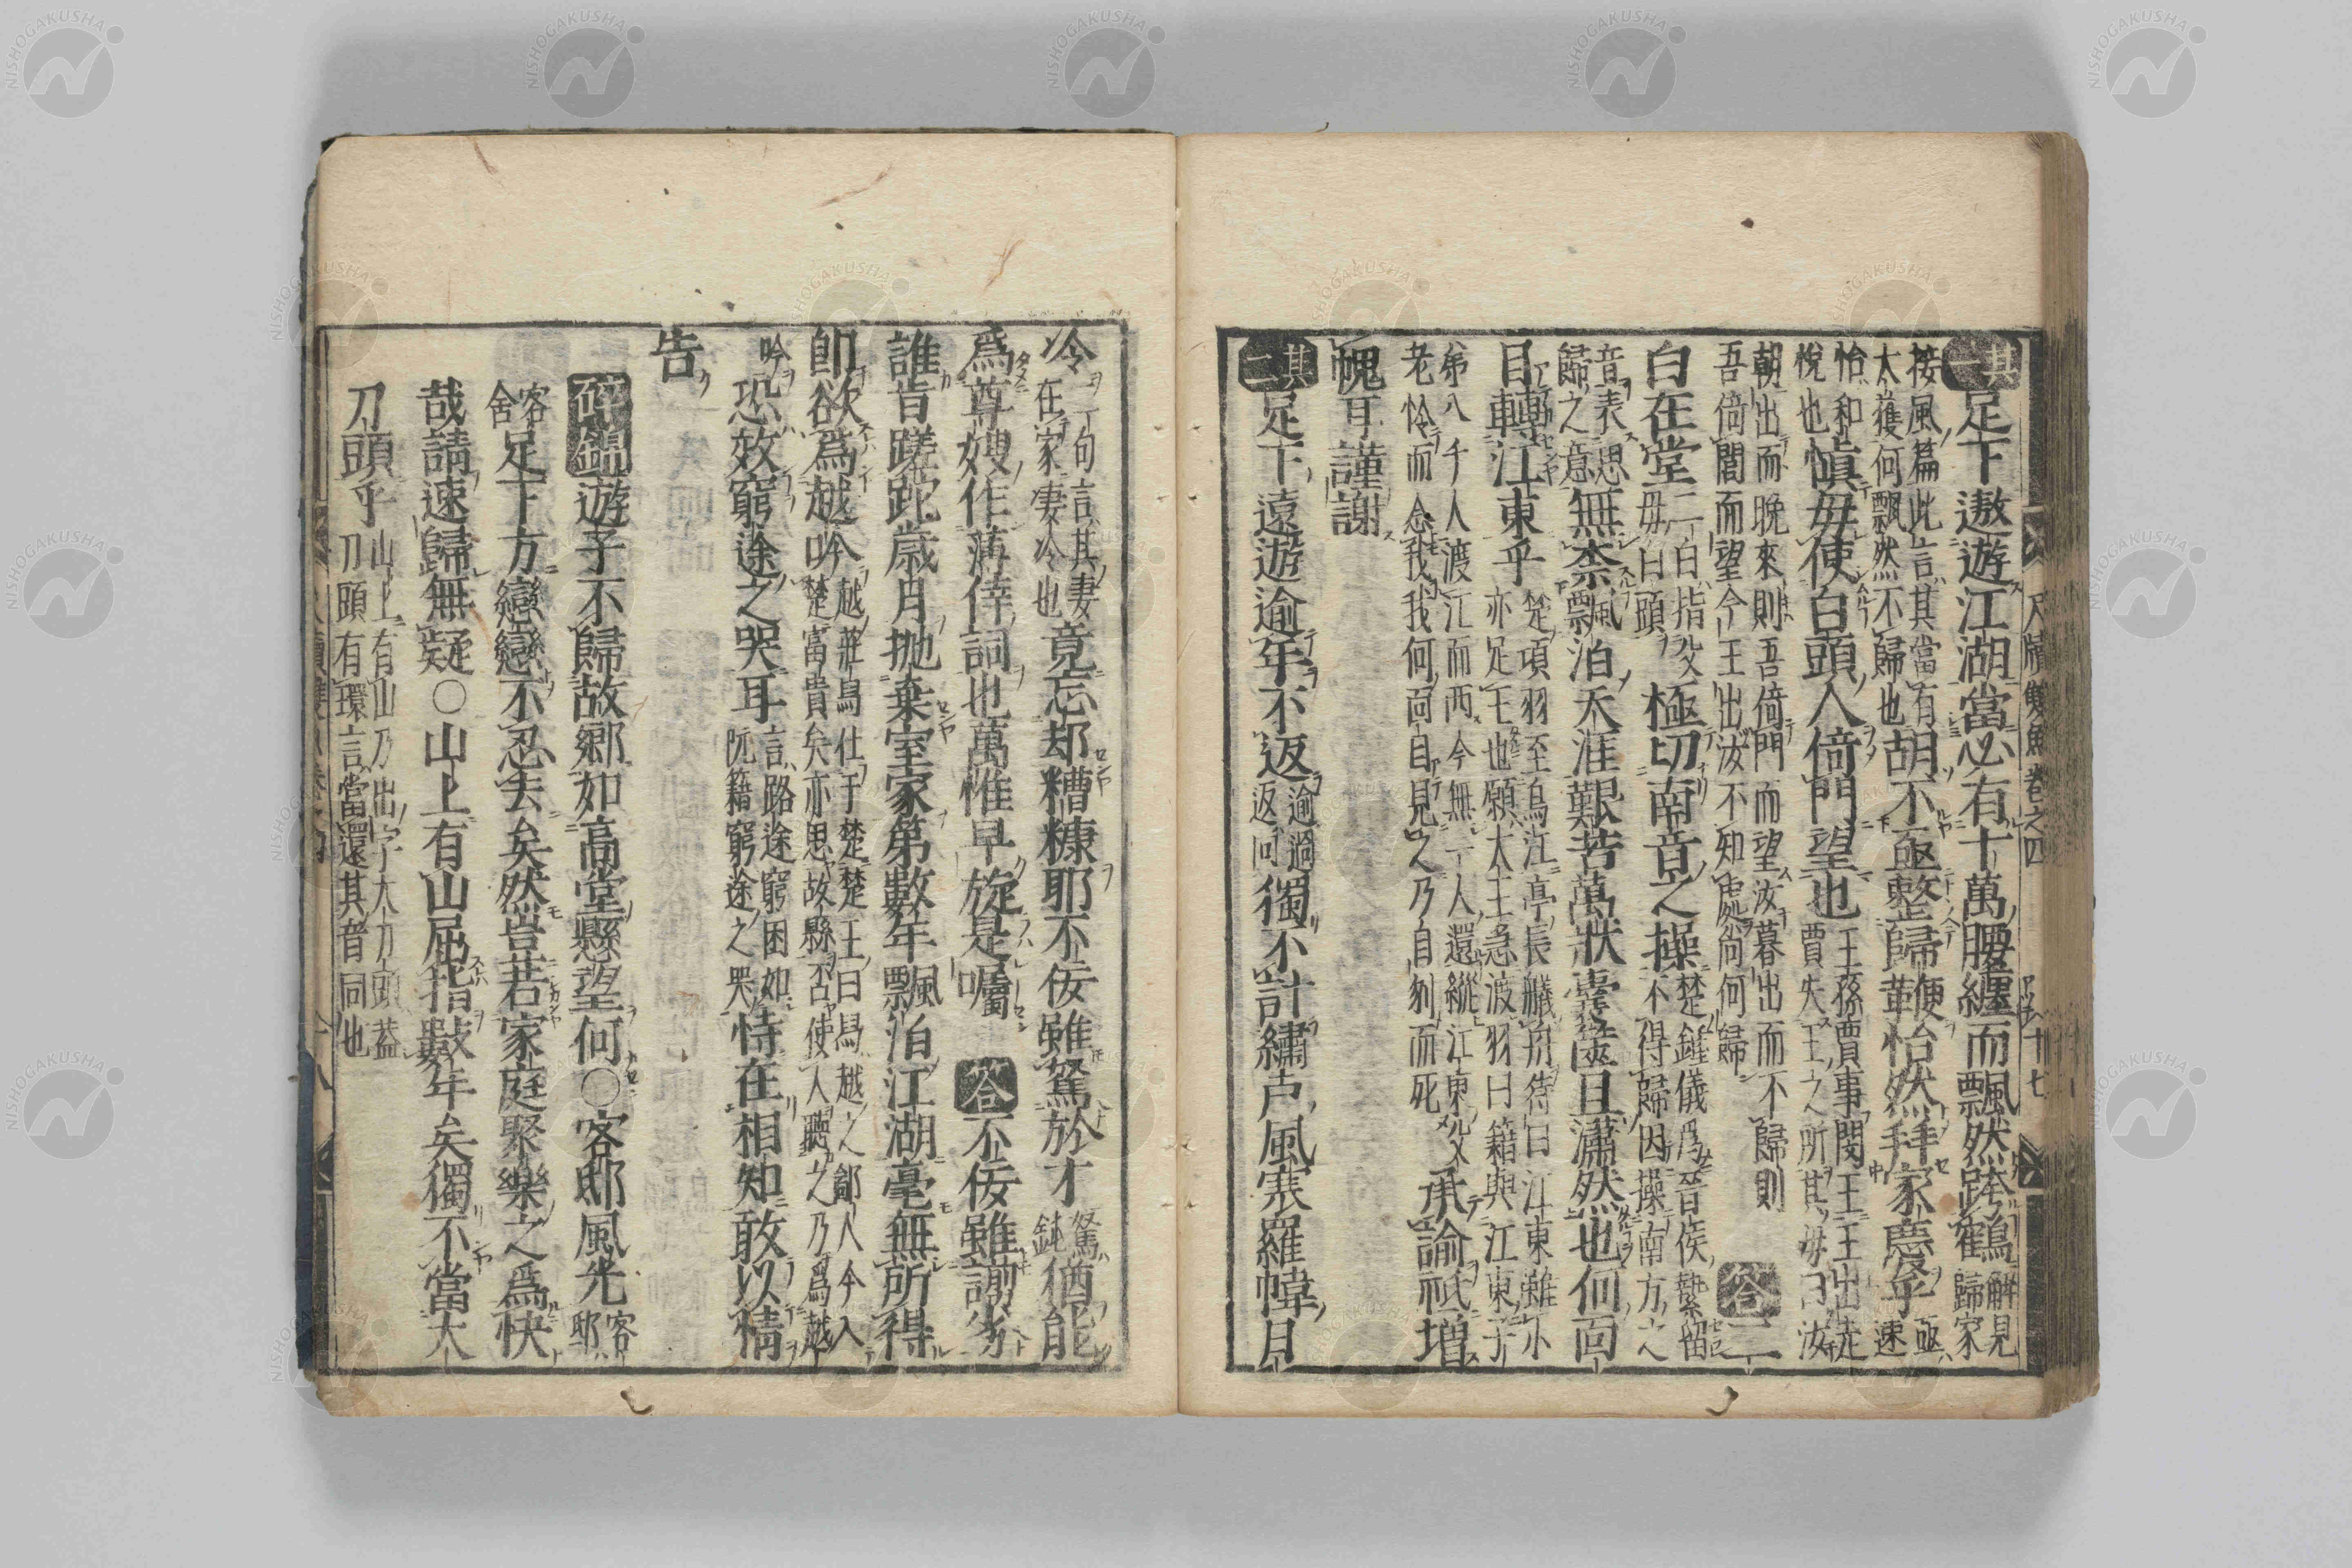 尺牘雙魚卷之四 十七
其一 足下遨遊江湖當必有十萬腰纏而飄然跨鶴 解見歸家
接風篇此言其當有大獲何飄然不歸也 胡不亟整歸䩯便怡然拜家慶乎 亟速
怡和悅也 慎毋使白頭人倚門望也 王孫賈事閔王王出走賈失王之所其毋曰汝
朝出而晚來則吾倚門而望汝暮出而不歸則吾倚閭而望今王出汝不知處尚何歸 答 二
白在堂 二白指父毋白頭 極切南音之操 楚鍾儀爲晉侯縶留不得歸因操南方之
音表思歸之意 無柰飄泊天涯艱苦萬狀囊篋且瀟然也何面
目轉江東乎 楚項羽至烏江亭長艤舟待曰江東雖小亦足王也願大王急渡羽曰籍與江東子
弟八千人渡江而西今無一人還縱江東父老怜而念我我何面自見之乃自刎而死 承諭祗增
愧耳謹謝
其二 足下遠遊逾年不返 逾過返回 獨不計繡户風寒羅幃月
冷 一句言其妻在家凄冷也 竟忘却糟糠耶不佞雖駑於才 駑鈍 猶能
爲尊嫂作薄倖詞也萬惟早旋是囑 答 不佞雖謭劣
誰肯蹉跎歲月抛棄室家第數年飄泊江湖毫無所得
卽欲爲越吟 越莊舄仕于楚楚王曰舄越之鄙人今入楚富貴矣亦思故縣否使人聽之乃爲越
吟 恐效窮途之哭耳 言路途窮困如阮籍窮途之哭 恃在相知敢以情
告
碎錦 遊子不歸故鄉如高堂懸望何〇客邸風光 客邸
客舍 足下方戀戀不忍去矣然豈若家庭聚樂之爲快
哉請速歸無疑〇山上有山屈指數年矣獨不當大
刀頭乎 山上有山乃出字大刀頭葢刀頭有環言當還其音同也